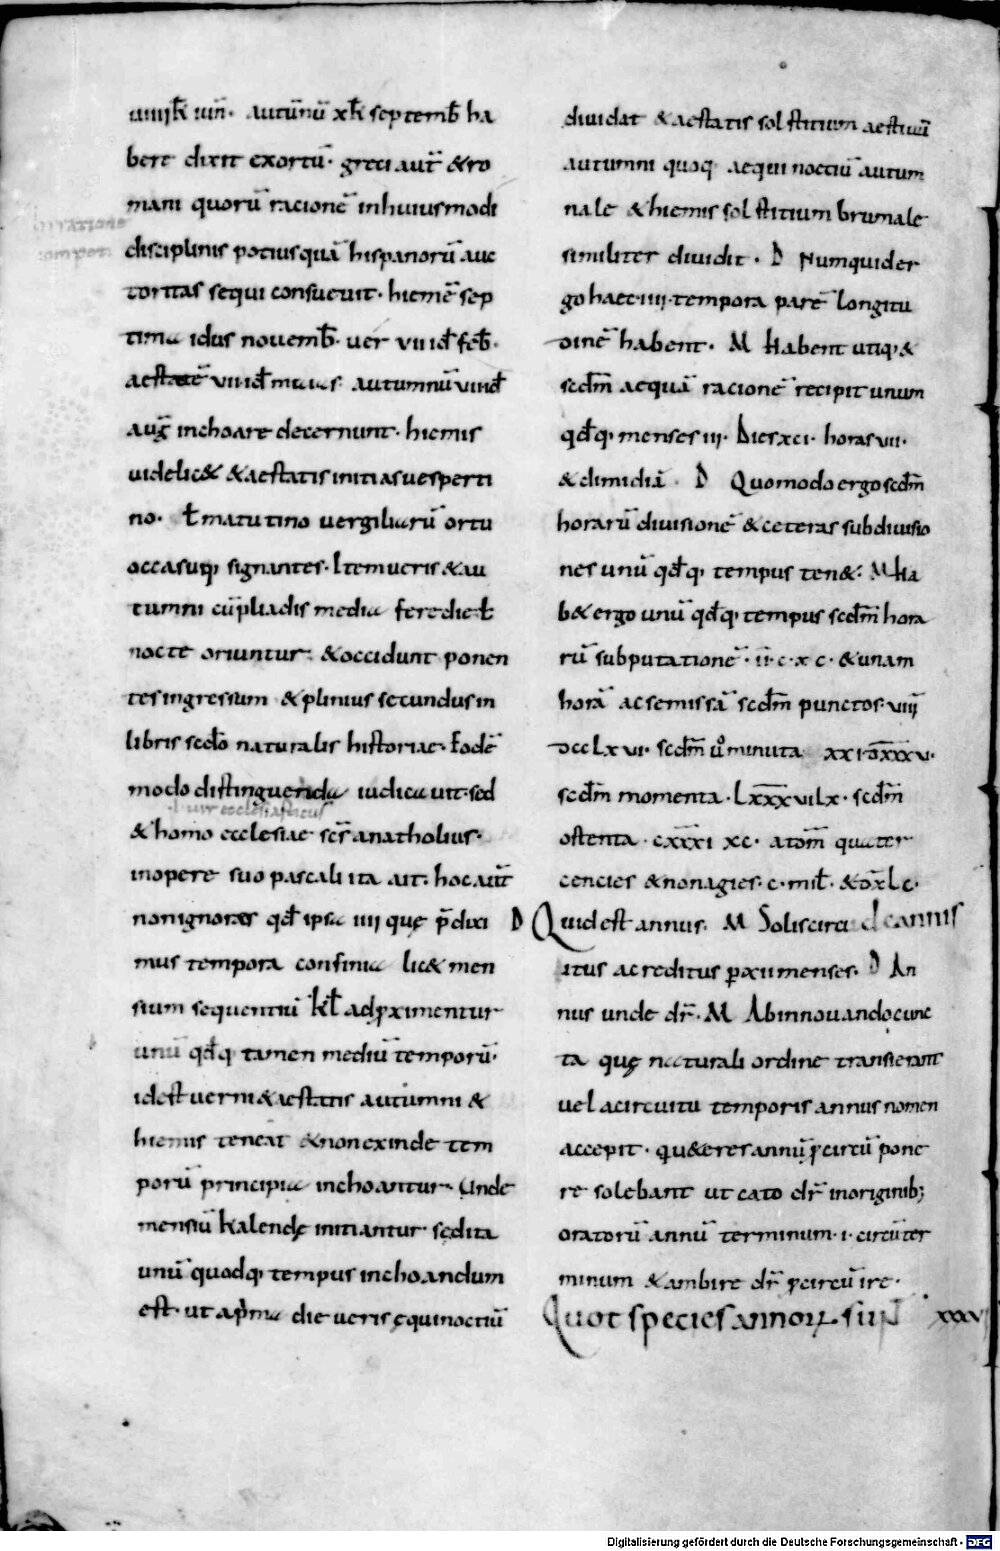 uiiijk̄ iun̄. autūnū xk̄ septemb̄ ha
bere dixit exortū. greci aut̄ & ro
mani quorū racionē in huiusmodi
disciplinis potius quā hispanorū auc
toritas sequi consueuit. hiemē sep
tima idus nouemb̄. uer vii id̄ feb̄.
aestatē vii id̄ maias. autumnū vii id̄
auḡ inchoare decernunt. hiemis
uidelic& & aestatis initia suesperti
no. ł matutino uergiliarū ortu
occasuq; signantes. Item ueris & au
tumni cū pliadis media fere die ł
nocte oriuntur. & occidunt ponen
tes ingressum & plinius secundus in
libris scđo naturalis historiae. Eodē
modo distinguenda iudicauit. sed
ł uir ecclesiasticus
& homo ecclesiae scs̄ anatholius.
in opere suo pascali ita ait. hoc aut̄
non ignorans qđ ipsa iiij quę p̄dixi
mus tempora confinia lic& men
sium sequentiū kł adp̱ximentur
unū qđq tamen mediū temporū.
id est uerni & aestatis autumni &
hiemis teneat & non exinde tem
porū principia inchoantur. Unde
mensiū kalendę initiantur sed ita
unū quodq; tempus inchoandum
est. ut a p̄ma die ueris ęquinoctiū
diuidat & aestatis solstitium aestiuū
autumni quoq; aequinoctiū autum
nale & hiemis solstitium brumale
similiter diuidit. D Numquid er
go haec iiii. tempora parē longitu
dinē habent. M Habent utiq; &
scđm aequā racionē recipit unum
qđq; menses iii. Dies xci. horas vii.
& dimidiā. D Quomodo ergo scđm
horarū diuisionē & ceteras subdiuisio
nes unū qđq; tempus ten&. M Ha
b& ergo unū qđq; tempus scđm hora
rū subputationē. īī. c. x c. & unam
horā ac semissā scđm punctos. viii
dcclxvi. scđm ůo minuta xxi dxxxv.
scđm momenta. Lxxxvi Lx. scđm
ostenta. cxxxi xc. atom̄ quater
cencies & nonagies. c. mił. & dxLc.
D Quid est annus. M Solis circu de annis
itus ac reditus p̱ xii menses. D An
nus unde dr̄. M Ab innouando cunc
ta quę naturali ordine transierant
uel a circuitu temporis annus nomen
accepit. qu& eres annū p̱ circū pone
re solebant ut cato dr̄ in originib;
oratorū annū terminum. i. circū ter
minum & ambire dr̄ p̱ circū ire.
Quot species annorꝝ sint xxxv